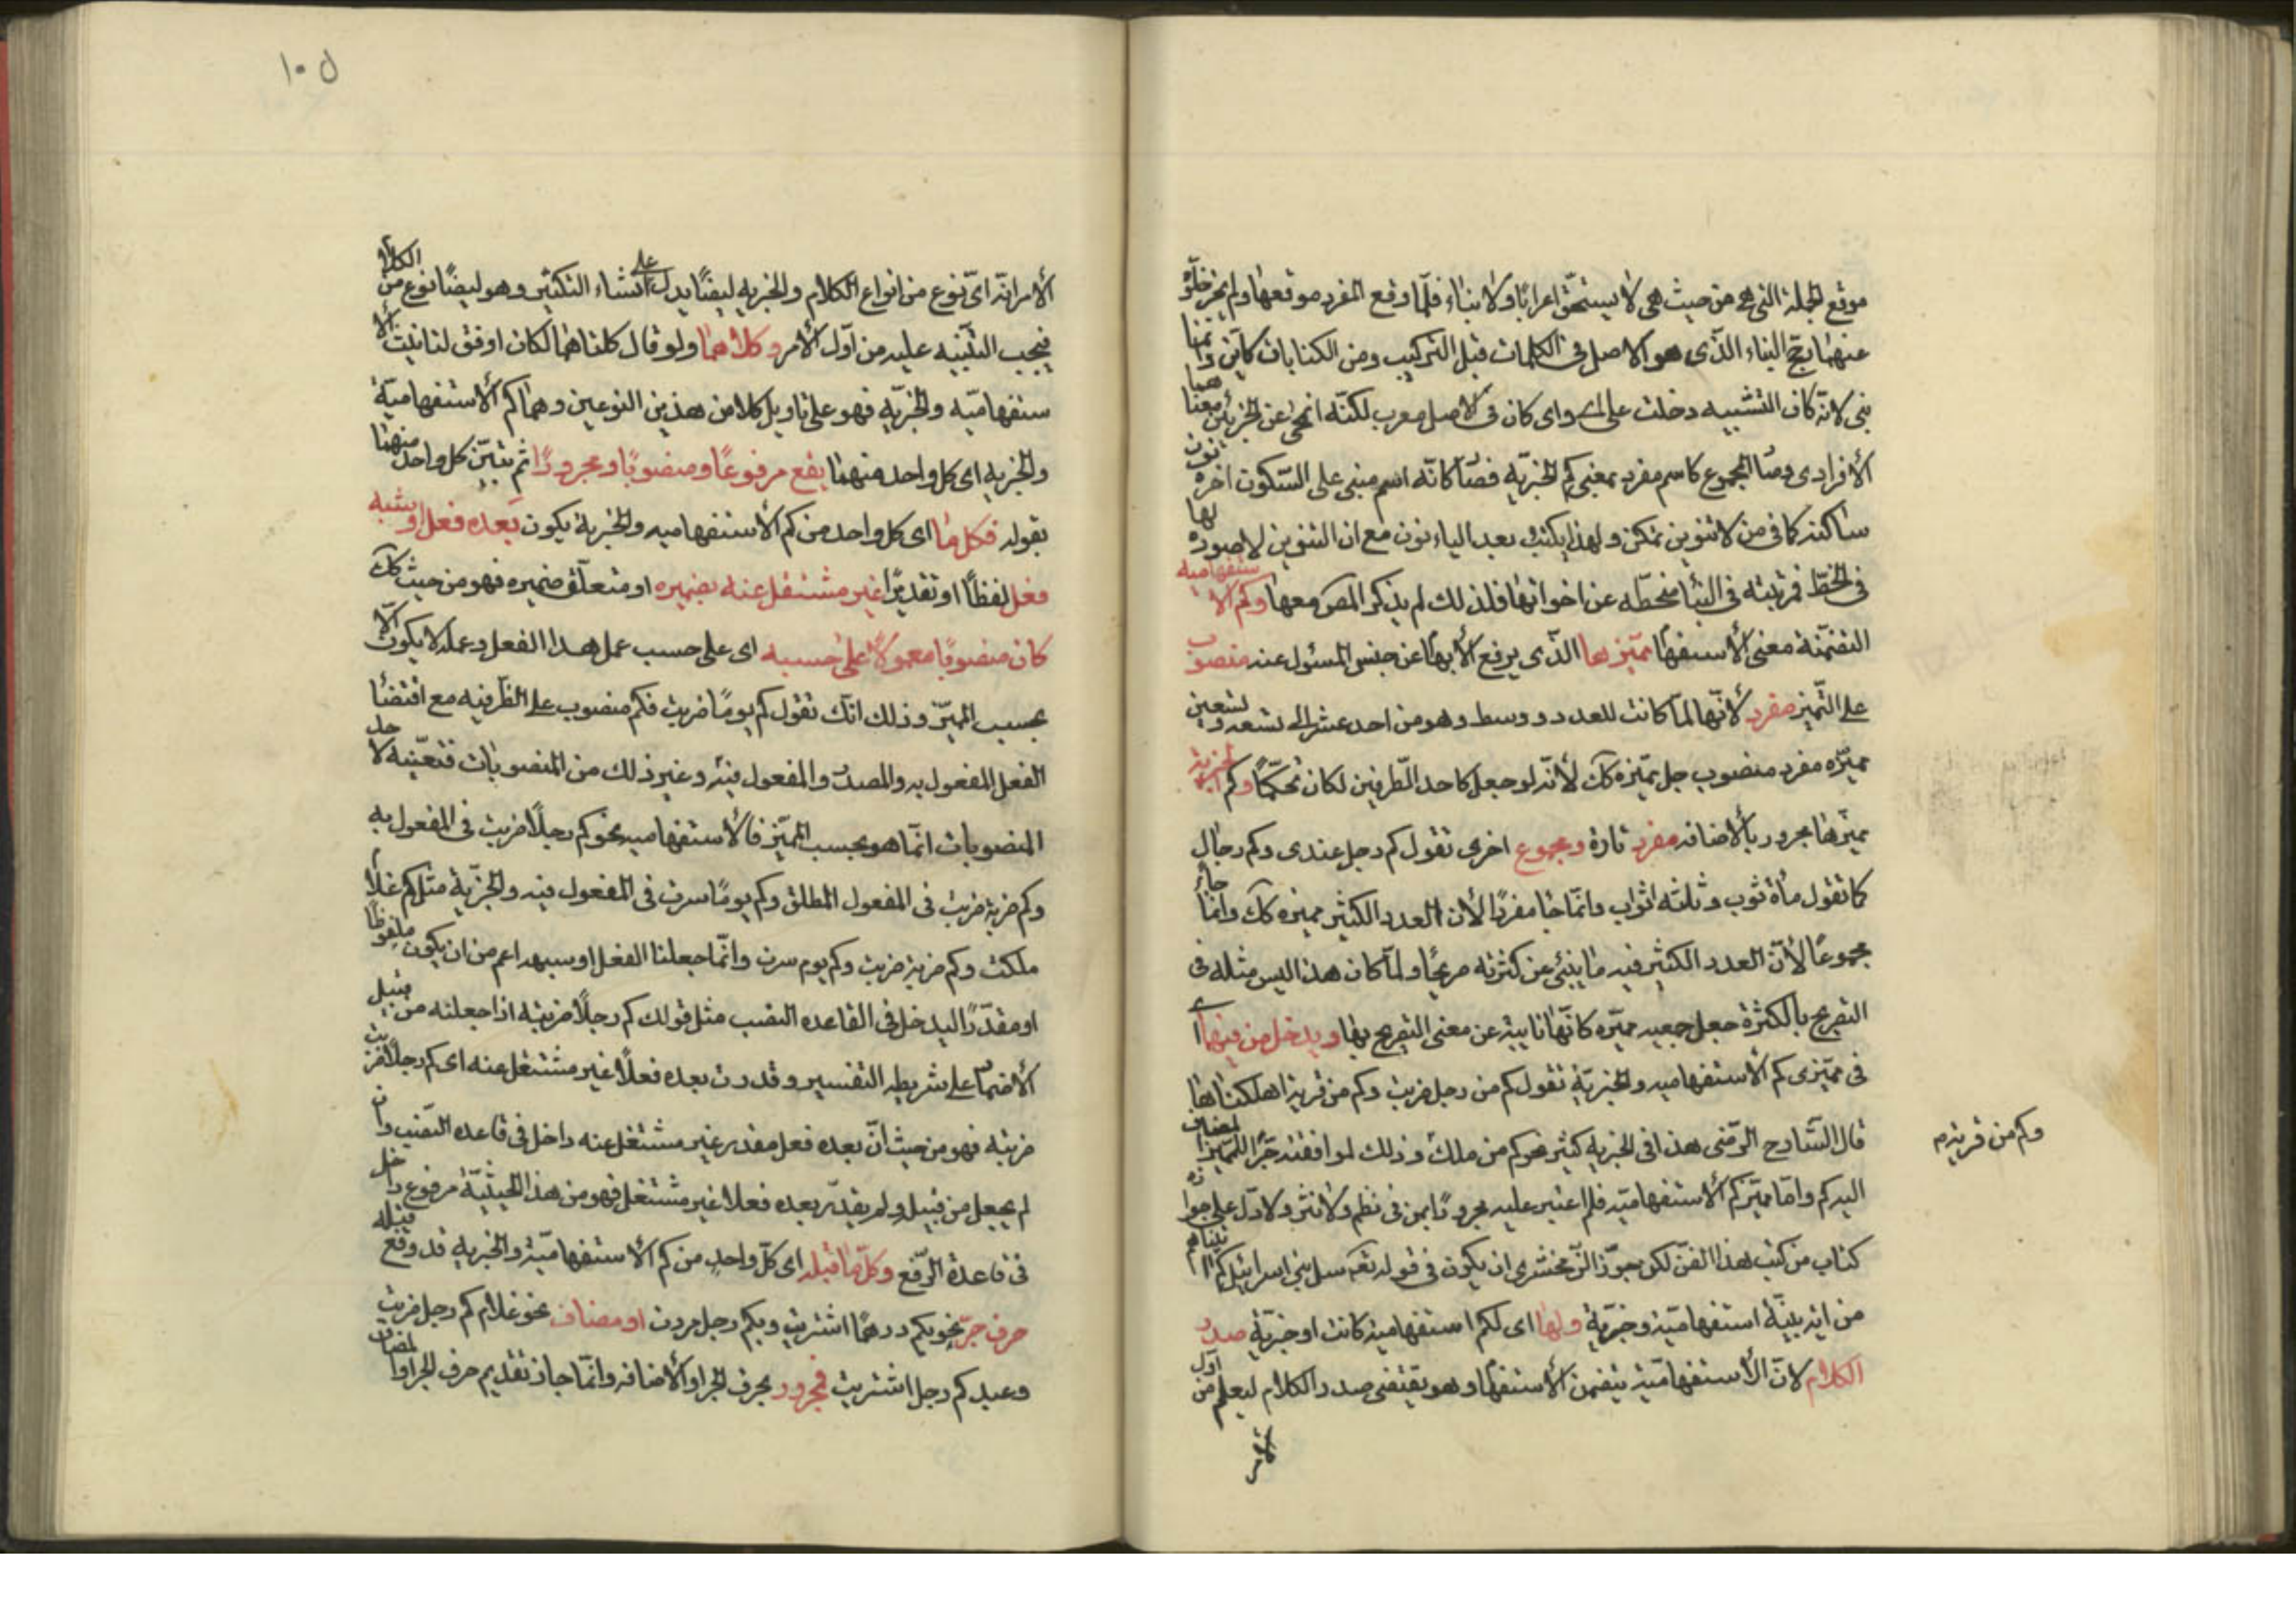 موقع الجملة التى هى من حيث هى لا يستحق اعرابا ولا بناء فلما وقع المفرد موقعها ولم يجز خلوه
عنهما رجح البناء الذى هو الاصل فى الكلمات قبل التركيب ومن الكنايات كاين وانما
بنى لانه كاف التشبيه دخلت على اى واى كان فى الاصل معرب لكنه انمحى عن الجزئين معناهما
الافرادى وصا المجموع كاسم مفرد بمعنى كم الخبرية فصا كانه اسم مبنى على السكون اخره نون
ساكنة كما فى من لا تنوين تمكن ولهذا يكتب بعد الياء نون مع ان التنوين لا صوره لها
فى الخط فمرتبته فى البنا منحطه عن اخواتها فلذلك لم يذكر المص معها وكم الاستفهامية
المتضمنة معنى الاستفها مميزها الذى يرفع الابها عن جنس المسئول عنه منصوب
على التميز مفرد لانها لما كانت للعدد ووسط وهو من احد عشر الى تسعه وتسعين
مميزه مفرد منصوب جعل مميزه كك لانه لو جعل كاحد الطرفين لكان تحكما وكم الخبرية
مميزها مجرور بالاضافه مفرد تارة ومجموع اخرى تقول كم رجل عندى وكم رجال
كما تقول مأة ثوب وثلثه اثواب وانما جا مفردا لان العدد الكثير مميزه كك وانما جاء
مجموعا لان العدد الكثير فيه ما ينبئ عن كثرته صريحا ولما كان هذا ليس مثله فى
التصريح بالكثرة جعل جمعيه مميزه كانها نايبة عن معنى التصريح بها ويدخل من فيهما اى
فى مميزى كم الاستفهاميه والخبرية تقول كم من رجل ضربت وكم من قرية اهلكناها
قال الشارح الرضى هذا فى الخبريه كثير نحو كم من ملك وذلك لموافقته جرا للمميز المضاف
اليه كم واما مميز كم الاستفهامية فلم اعثر عليه مجرورا بمن فى نظم ولا نثر ولا دل على جوازه
كتاب من كتب هذا الفن لكن جوز الزمخشرى ان يكون فى قوله تعـ سل بنى اسرائيل كم اتيناهم
من اية بينة استفهامية وخبرية ولها اى لكم استفهامية كانت او خبرية صدر
الكلام لان الاستفهامية يتضمن الاستفها وهو يقتضى صدر الكلام ليعلم من اول
وكم من قرية م
١٠٥
الامر انه اى نوع من انواع الكلام والخبريه ايضا يدل على انشاء التكثير وهو ايضا نوع من الكلام
فيجب التنبيه عليه من اول الامر وكلاهما ولو قال كلتاهما لكان اوفق لتانيث الا
ستفهامية والخبرية فهو على تاويل كلا من هذين النوعين وهما كم الاستفهامية
والخبريه اى كل واحد منهما يقع مرفوعا ومنصوبا ومجرورا ثم بين كل واحد منهما
بقوله فكل ما اى كل واحد من كم الاستفهاميه والخبرية يكون بعده فعل او شبه
فعل لفظا او تقديرا غير مشتغل عنه بضميره او متعلق ضميره فهو من حيث كك
كان منصوبا معمولا على حسبه اى على حسب عمل هذا الفعل وعمله لا يكون الا
بحسب المميز وذلك انك تقول كم يوما ضربت فكم منصوب على الظرفيه مع اقتضا
الفعل المفعول به والمصدر والمفعول فيه وغير ذلك من المنصوبات فتعينه لا حد
المنصوبات انما هو بحسب المميز فالاستفهاميه نحو كم رجلا ضربت فى المفعول به
وكم ضربة ضربت فى المفعول المطلق وكم يوما سرت فى المفعول فيه والخبرية مثل كم غلام
ملكت وكم ضربة ضربت وكم يوم سرت وانما جعلنا الفعل او شبهه اعم من ان يكون ملفوظا
او مقدرا ليدخل فى القاعده النصب مثل قولك كم رجلا ضربته اذا جعلته من قبيل
الاضما على شريطه التفسير وقدرت بعده فعلا غير مشتغل عنه اى كم رجلا ضربت
ضربته فهو من حيث ان بعده فعل مقدر غير مشتغل عنه داخل فى قاعده النصب وان
لم يجعل من قبيله ولم يقدر بعده فعلا غير مشتغل فهو من هذا الحيثية مرفوع داخل
فى قاعدة الرفع وكل ما قبله اى كل واحد من كم الاستفهامية والخبريه قد وقع قبله
حرف جر نحو بكم درهما اشتريت وبكم رجل مررت او مضاف نحو غلام كم رجل ضربت
وعبد كم رجل اشتريت فمجرور بحرف الجر او الاضافه وانما جاز تقديم حرف الجر او المضاف